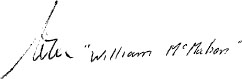 "William McMahon"